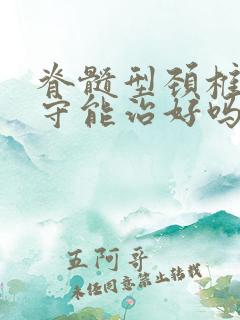 脊髓型颈椎
守能治好吗
五阿哥
未经同意禁止转载